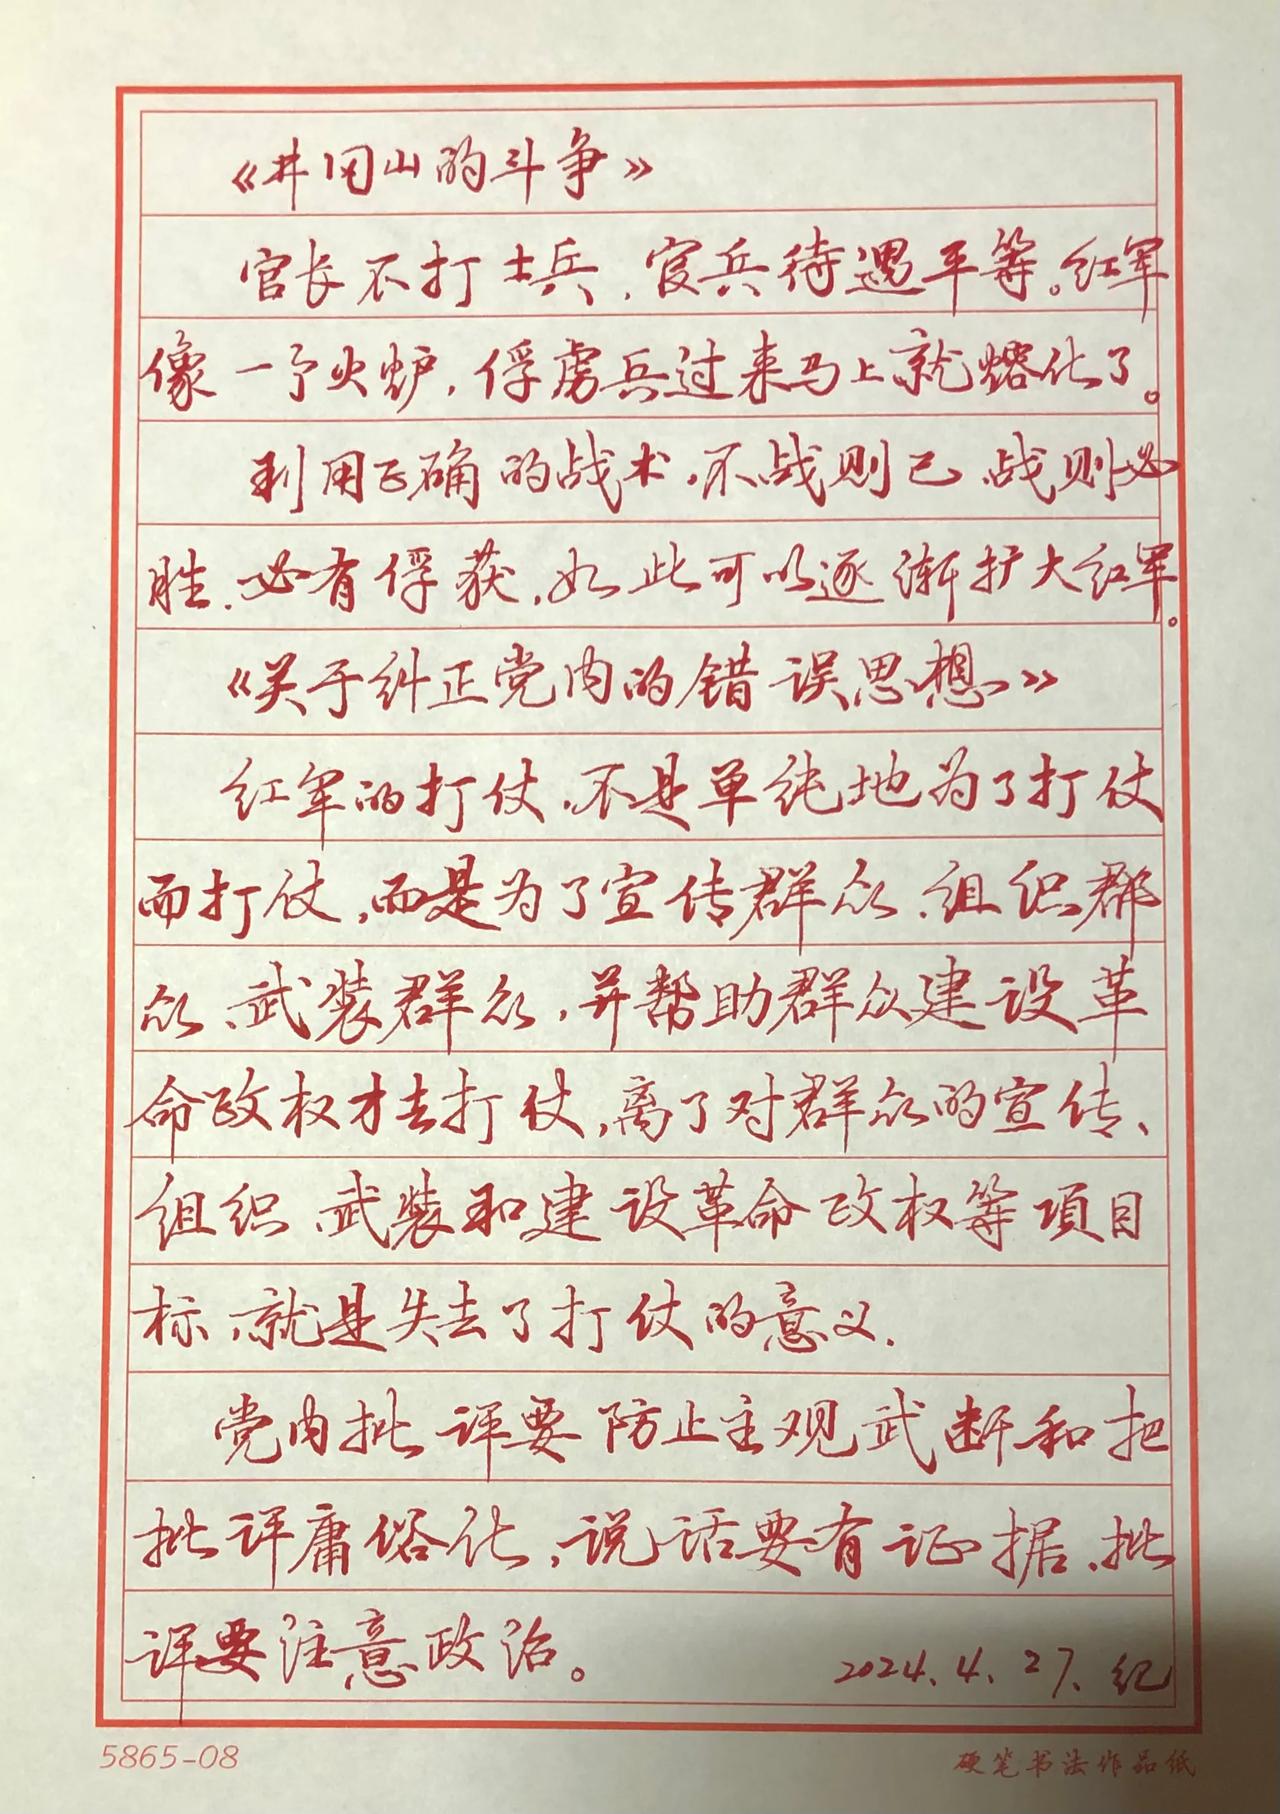 《井冈山的斗争》
官长不打士兵，官兵待遇平等。红军
像一个火炉，俘虏兵过来马上就熔化了。
利用正确的战术，不战则已，战则必
胜，必有俘获，如此可以逐渐扩大红军。
《关于纠正党内的错误思想》
红军的打仗，不是单纯地为了打仗
而打仗，而是为了宣传群众、组织群
众、武装群众，并帮助群众建设革
命政权才去打仗，离了对群众的宣传、
组织、武装和建设革命政权等项目
标，就是失去了打仗的意义.
党内批评要防止主观武断和把
批评庸俗化，说话要有证据，批
评要注意政治。
2024.4.27.纪
5865-08
硬笔书法作品纸